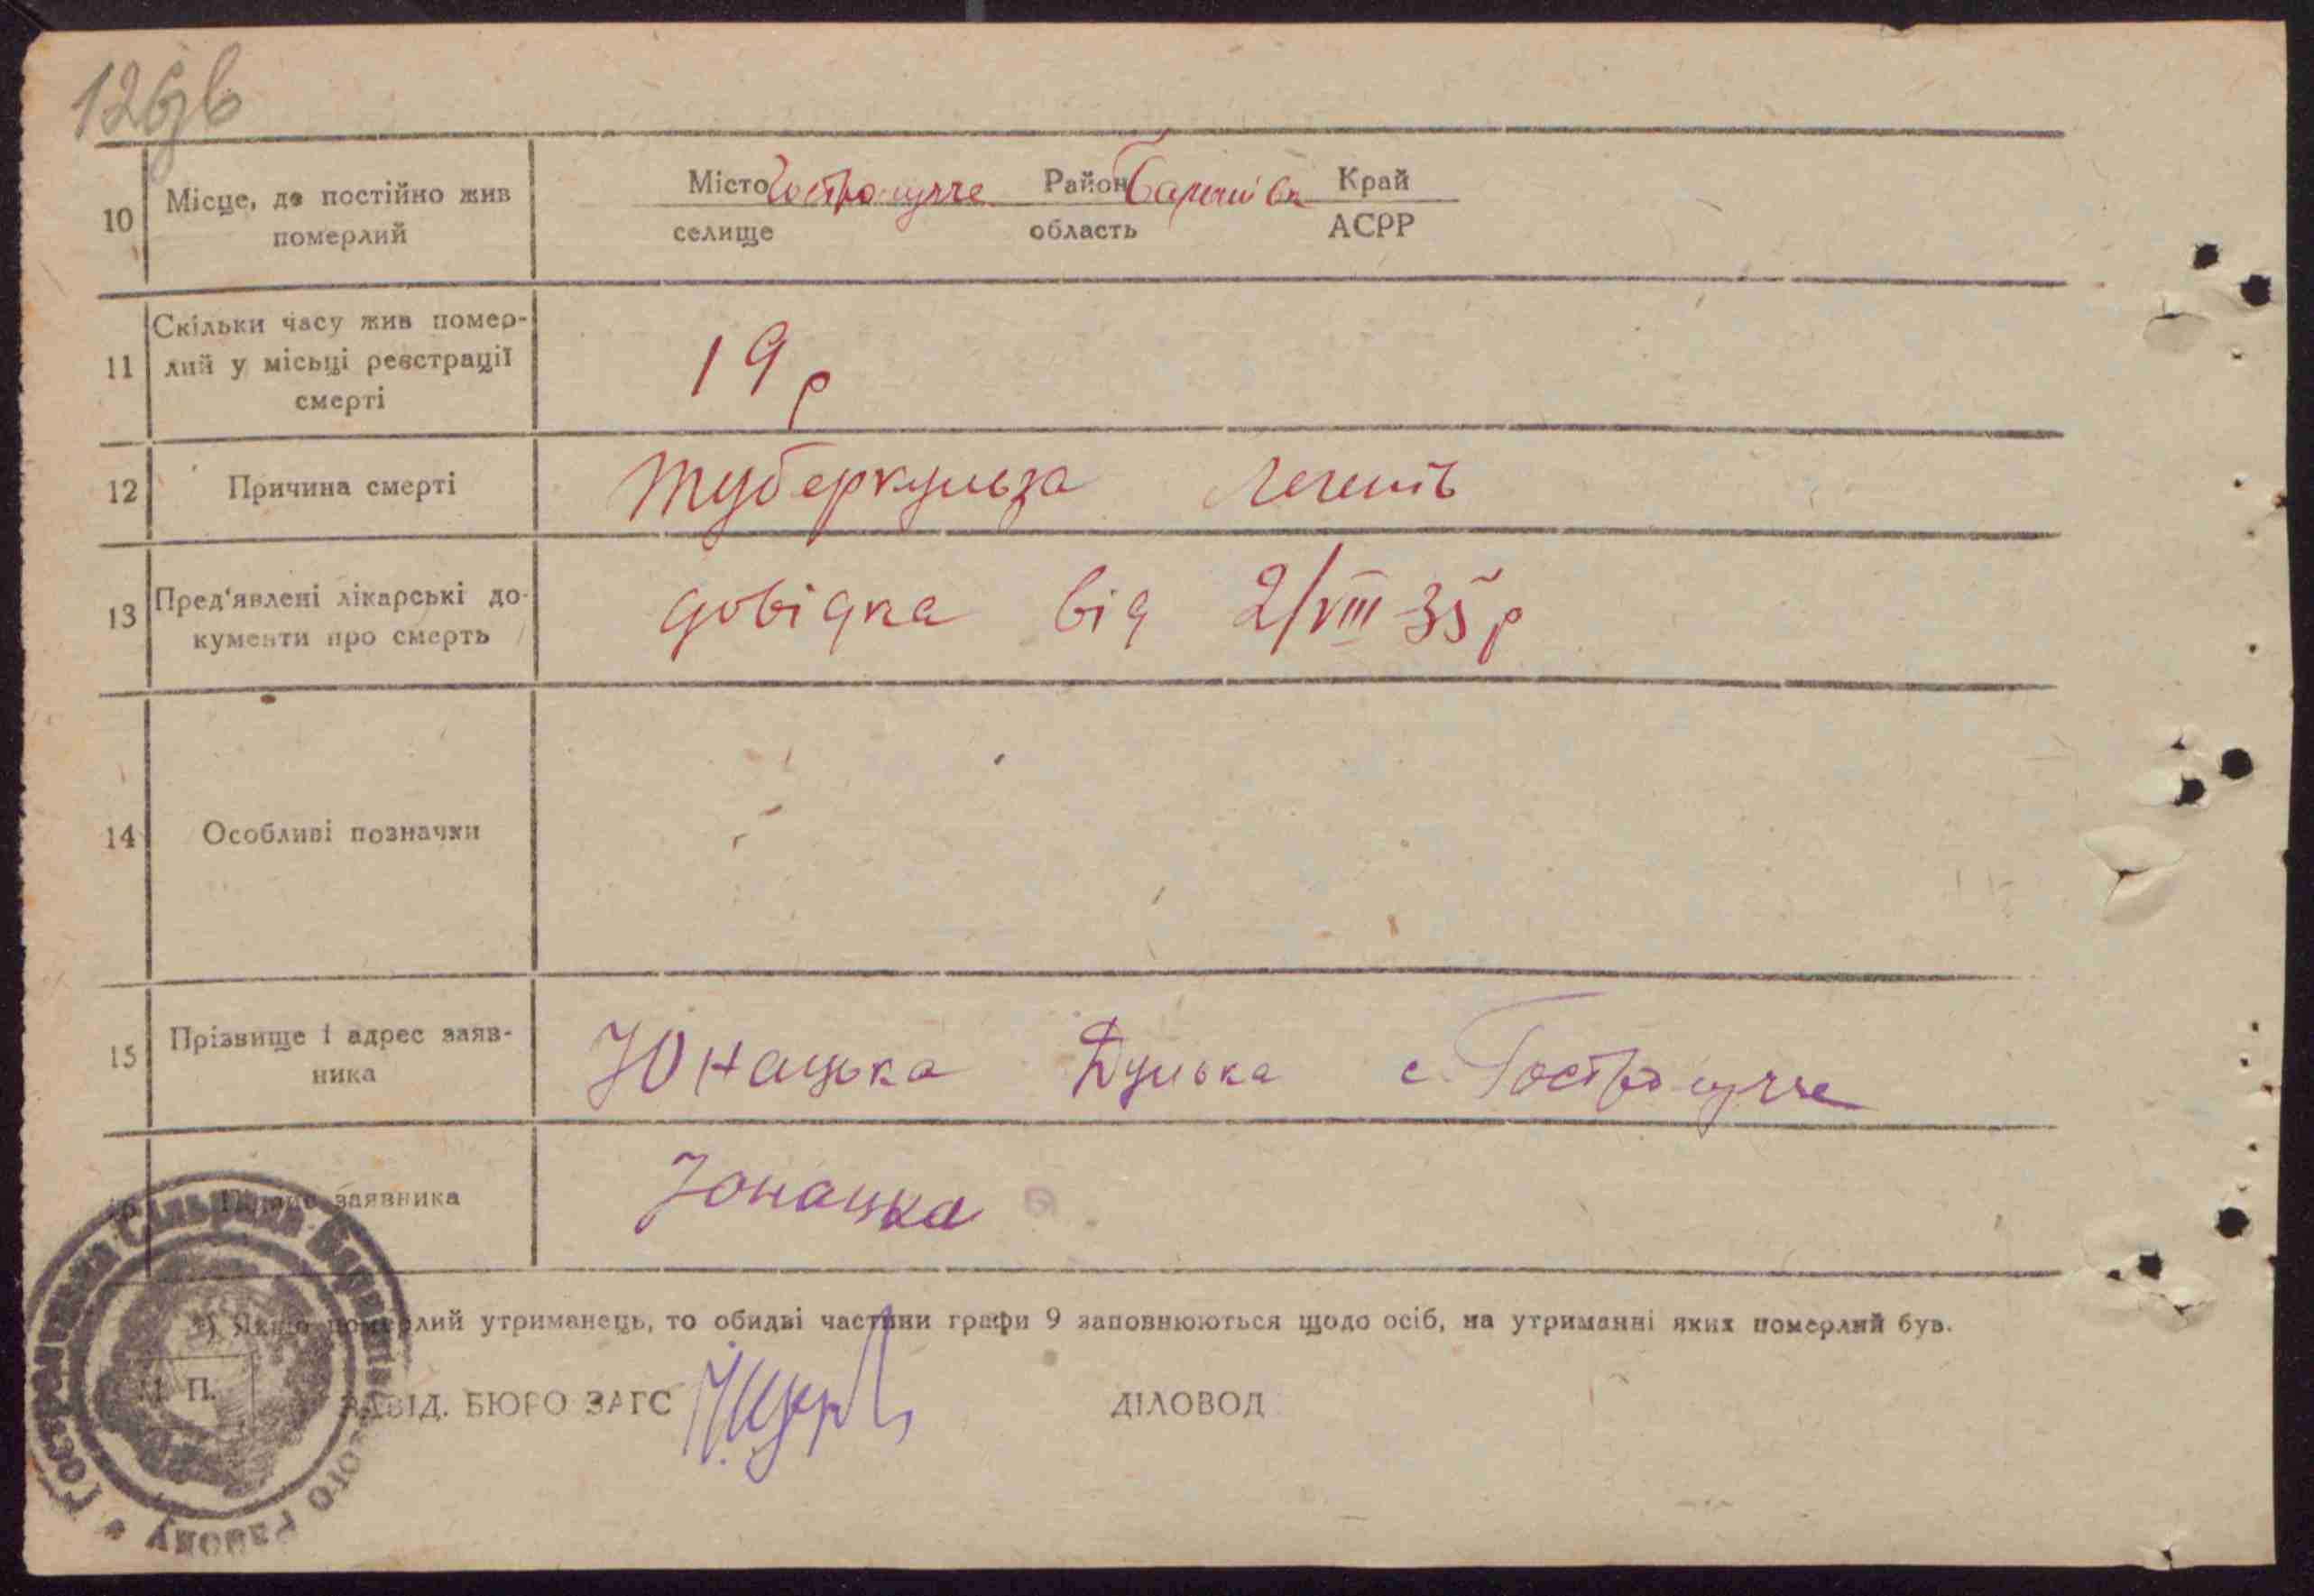 126зв
10 Місце, де постійно жив померлий
Місто Гостролуччя Район Баришівк Край
селище область АСРР
11 Скільки часу жив помер-
лий у місьці реєстрації
смерті
19 р
12 Причина смерті
туберкульза легенів
13 Пред'явлені лікарські до-
кументи про смерть
довідка від 2/VIII 35 р
14 Особливі позначки
15 Прізвище і адрес заяв-
ника
Юнацька Дунька с. Гостролучче
заявника
Юнацька
*) Якщо померлий утриманець, то обидві частини графи 9 заповнюються щодо осіб, на утриманні яких померлий був.
М. П.
ЗАВІД. БЮРО ЗАГС
ДІЛОВОД
Сільрада
району